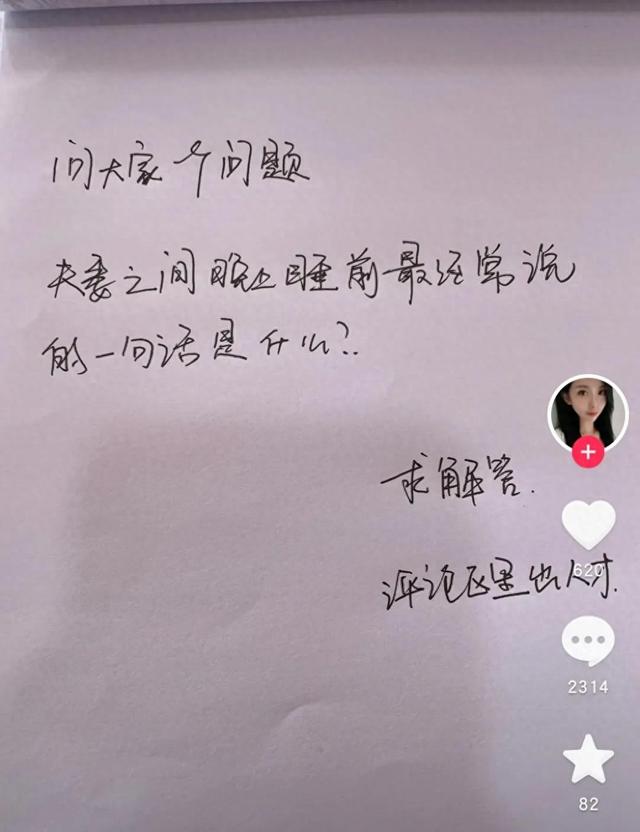 问大家个问题
夫妻之间晚上睡前最经常说
的一句话是什么?
求解答.
评论区里出人才.
620
2314
82